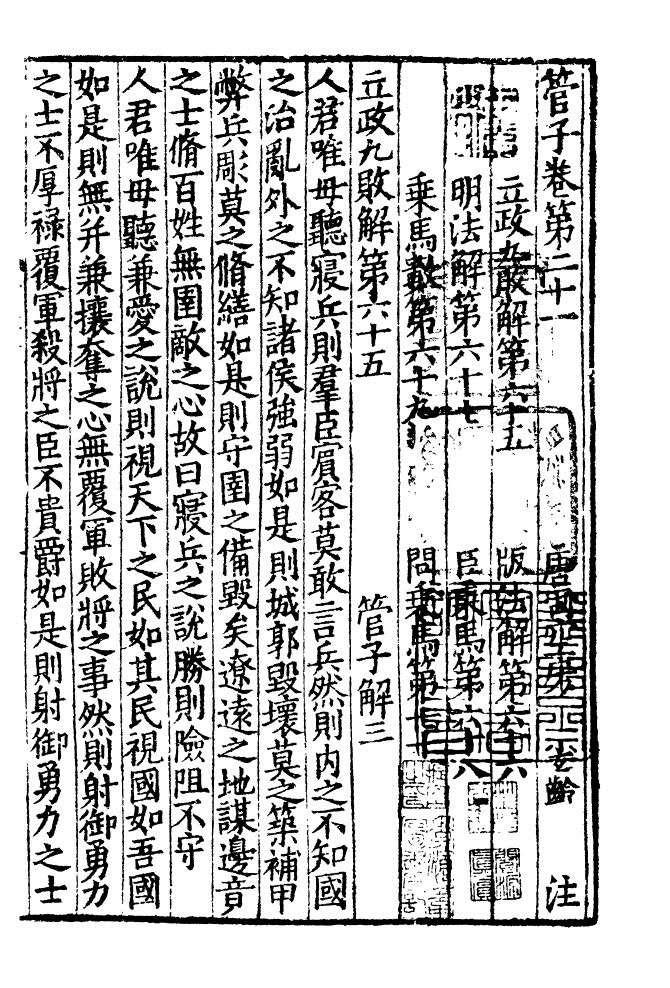 管子卷第二十一 唐司空房玄齡 注
立政九敗解第六十五 版法解第六十六
明法解第六十七 臣乗馬第六十八
乗馬數第六十九 問乗馬第七十
立政九敗解第六十五 管子解三
人君唯毋聽寢兵則羣臣賔客莫敢言兵然則内之不知國
之治亂外之不知諸侯強弱如是則城郭毀壞莫之築補甲
弊兵彫莫之脩繕如是則守圉之備毀矣遼遠之地謀邊竟
之士脩百姓無圉敵之心故曰寢兵之說勝則險阻不守
人君唯毋聽兼愛之說則視天下之民如其民視國如吾國
如是則無并兼攘奪之心無覆軍敗將之事然則射御勇力
之士不厚祿覆軍殺將之臣不貴爵如是則射御勇力之士